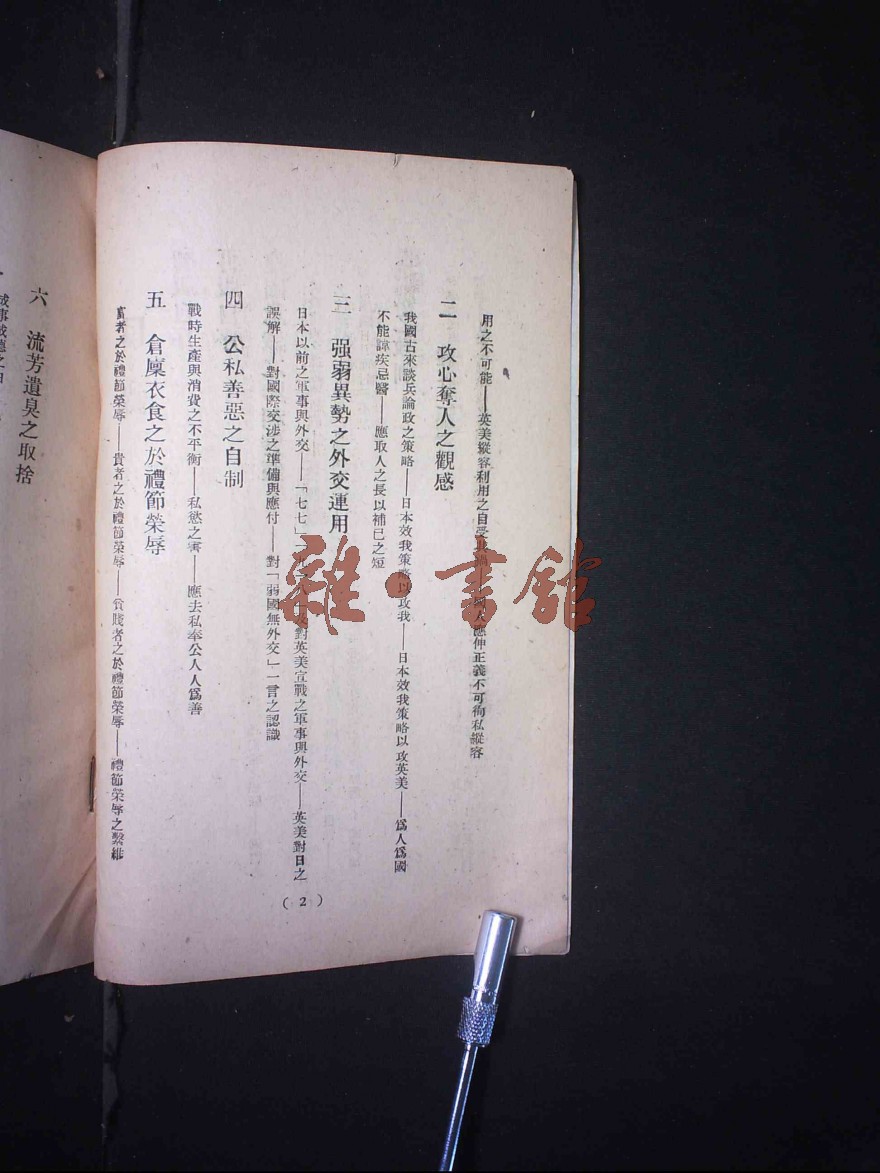 用之不可能——英美縱容利用之自受其禍——國人應伸正義不可徇私縱容
二 攻心奪人之觀感
我國古來談兵論政之策略——日本效我策略以攻我——日本效我策略以攻英美——爲人爲國
不能諱疾忌醫——應取人之長以補己之短
三 强弱異勢之外交運用
日本以前之軍事與外交——「七七」「九一八」及對英美宣戰之軍事與外交——英美對日之
誤解——對國際交涉之準備與應付——對「弱國無外交」一言之認識
四 公私善惡之自制
戰時生產與消費之不平衡——私慾之害——應去私奉公人人爲善
五 倉廩衣食之於禮節榮辱
富者之於禮節榮辱——貴者之於禮節榮辱——貧賤者之於禮節榮辱——禮節榮辱之繫維
(2)
六 流芳遺臭之取捨
雜·書館